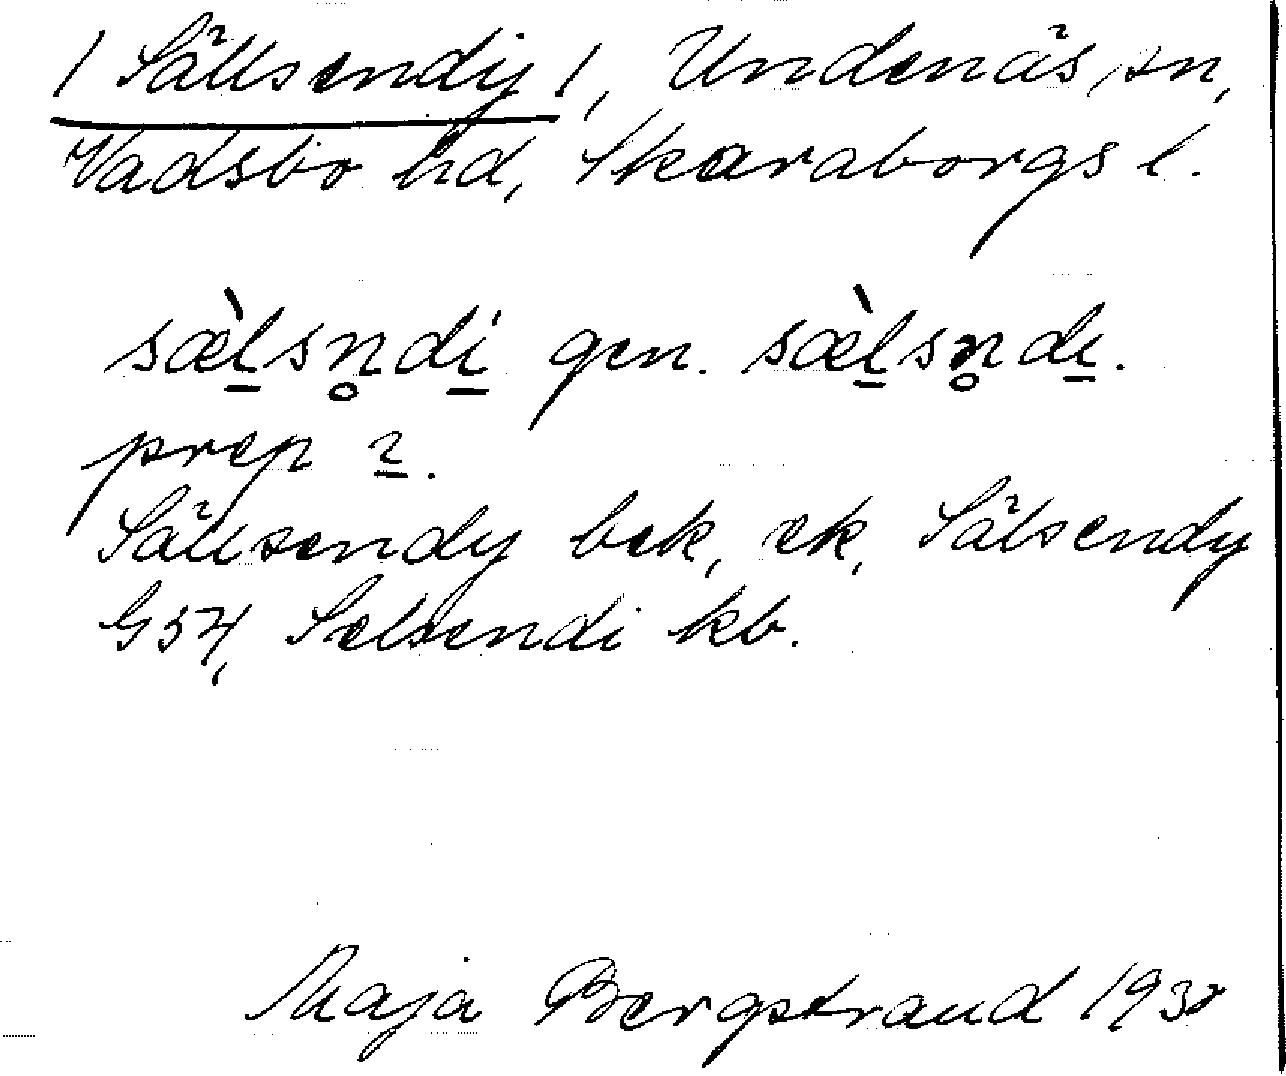 / Sällsendy /, Undenäs sn,
Vadsbo hd, Skaraborgs l.
sæ̀l̠sn̥di̠ gen. sæ̀l̠sn̥dı̠.
prep
Sällsendy bek, ek, Sälsendy
G54, Selsendi kb.
Maja Bergstrand